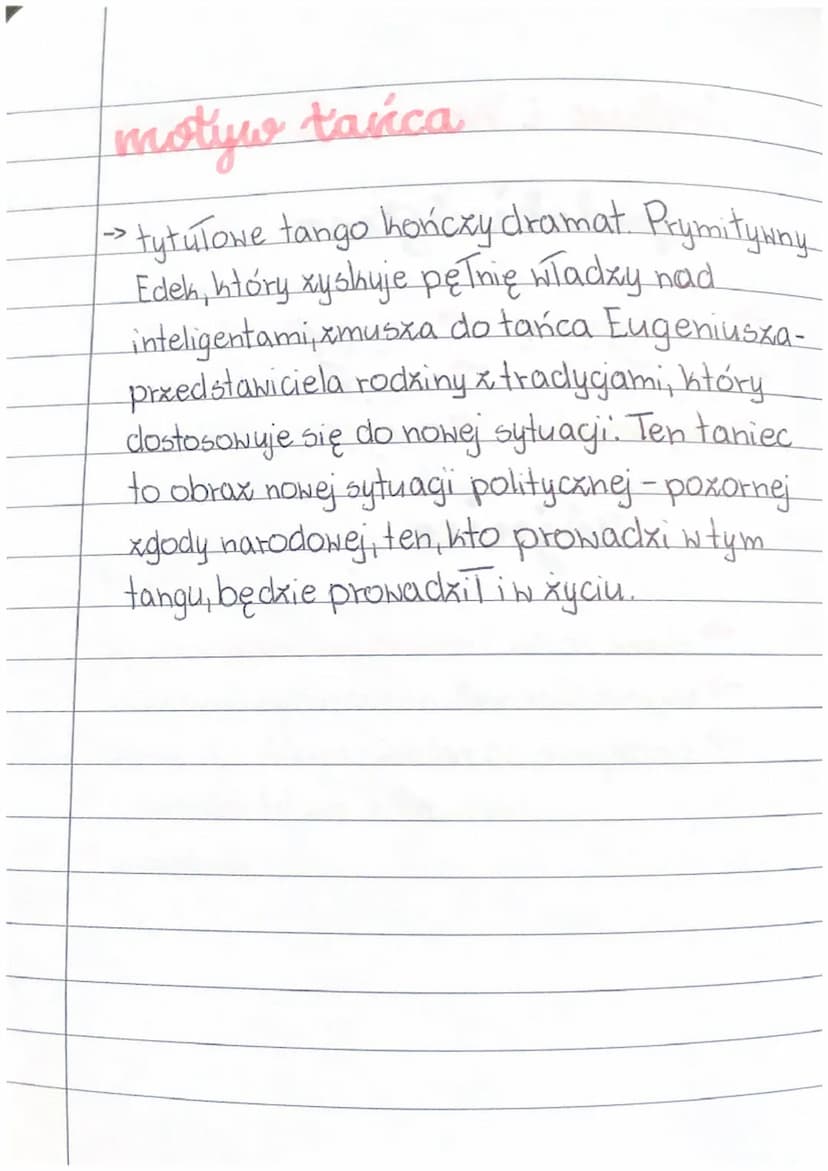 motyw tańca
→ tytułowe tango kończy dramat. Prymitywny
Edek, który zyskuje pełnię władzy nad
inteligentami, zmusza do tańca Eugeniusza-
przedstawiciela rodziny z tradycjami, który
dostosowuje się do nowej sytuacji. Ten taniec
to obraz nowej sytuacji politycznej - pozornej
zgody narodowej, ten, kto prowadzi w tym
tangu, będzie prowadził i w życiu.